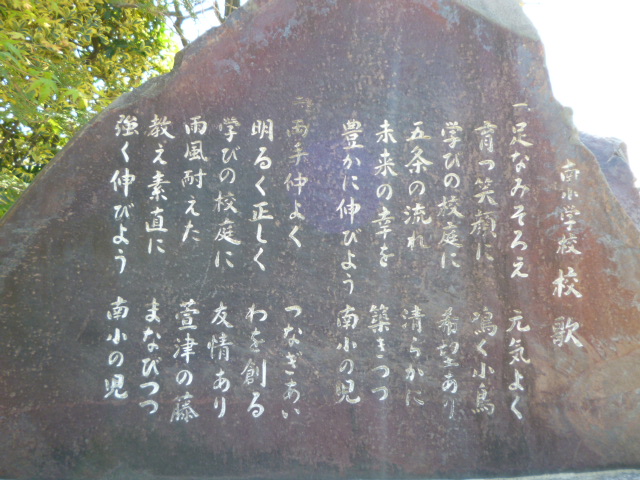 南小学校 校歌
一 足なみそろえ 元気よく
育つ笑顔に 鳴く小鳥
学びの校庭に 希望あり
五条の流れ 清らかに
未来の幸を 築きつつ
豊かに伸びよう 南小の児
二 両手仲よく つなぎあい
明るく正しく わを創る
学びの校庭に 友情あり
雨風耐えた 萱津の藤
教え素直に まなびつつ
強く伸びよう 南小の児